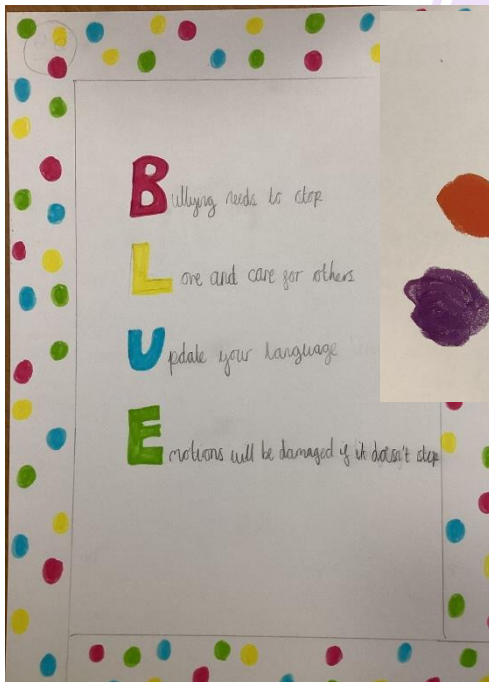 Bullying needs to stop
Love and care for others
Update your language
Emotions will be damaged if it doesn't stop